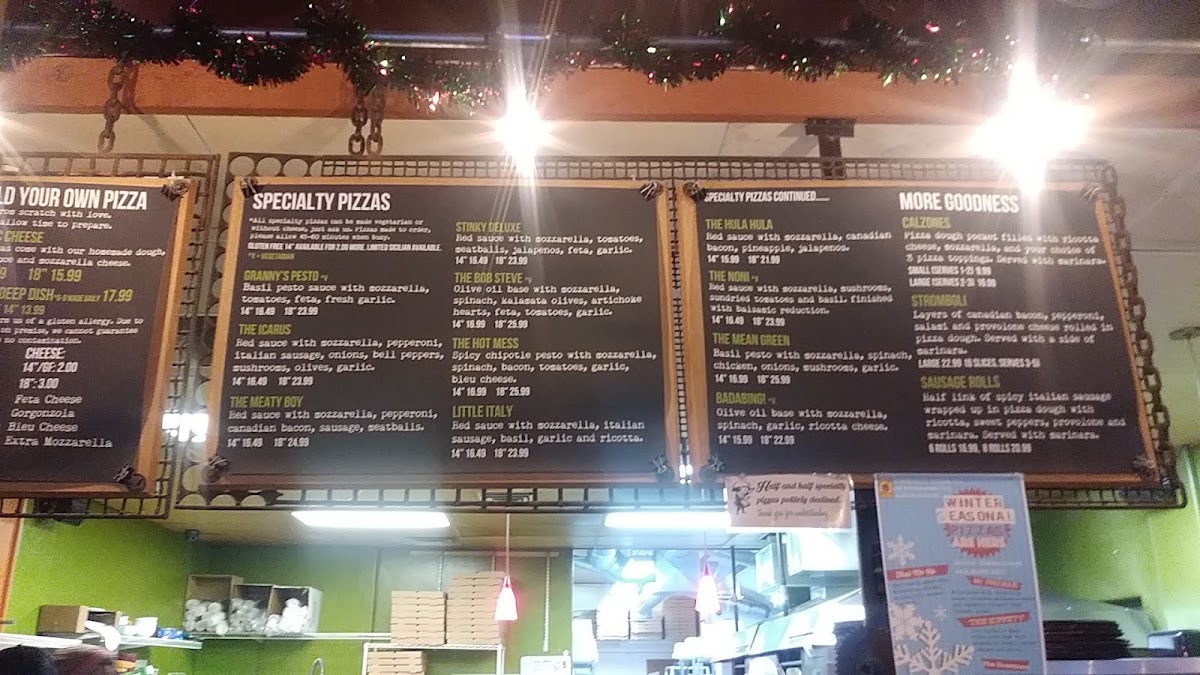 LD YOUR OWN PIZZA
scratch with love.
allow time to prepare.
CHEESE
come with our homemade dough,
and mozzarella cheese.
18" 15.99
DEEP DISH 17.99
14" 13.99
us of a gluten allergy. Due to
on premise, we cannot guarantee
no contamination.
CHEESE:
14"/GF: 2.00
18": 3.00
Feta Cheese
Gorgonzola
Bleu Cheese
Extra Mozzarella
SPECIALTY PIZZAS
*All specialty pizzas can be made vegetarian or
without cheese, just ask us. Pizzas made to order,
please allow 45-60 minutes when busy.
GLUTEN FREE 14" AVAILABLE FOR 2.00 MORE. LIMITED SICILIAN AVAILABLE.
*V = VEGETARIAN
GRANNY'S PESTO *V
Basil pesto sauce with mozzarella,
tomatoes, feta, fresh garlic.
14" 16.49 18" 23.99
THE ICARUS
Red sauce with mozzarella, pepperoni,
italian sausage, onions, bell peppers,
mushrooms, olives, garlic.
14" 16.49 18" 23.99
THE MEATY BOY
Red sauce with mozzarella, pepperoni,
canadian bacon, sausage, meatballs.
14" 16.49 18" 24.99
STINKY DELUXE
Red sauce with mozzarella, tomatoes,
meatballs, jalapenos, feta, garlic.
14" 16.49 18" 23.99
THE BOB STEVE *V
Olive oil base with mozzarella,
spinach, kalamata olives, artichoke
hearts, feta, tomatoes, garlic.
14" 16.99 18" 25.99
THE HOT MESS
Spicy chipotle pesto with mozzarella,
spinach, bacon, tomatoes, garlic,
bleu cheese.
14" 16.99 18" 25.99
LITTLE ITALY
Red sauce with mozzarella, italian
sausage, basil, garlic and ricotta.
14" 16.49 18" 23.99
SPECIALTY PIZZAS CONTINUED......
THE HULA HULA
Red sauce with mozzarella, canadian
bacon, pineapple, jalapenos.
14" 15.99 18" 21.99
THE NONI *V
Red sauce with mozzarella, mushrooms,
sundried tomatoes and basil finished
with balsamic reduction.
14" 16.49 18" 23.99
THE MEAN GREEN
Basil pesto with mozzarella, spinach,
chicken, onions, mushrooms, garlic.
14" 16.99 18" 25.99
BADABING! *V
Olive oil base with mozzarella,
spinach, garlic, ricotta cheese.
14" 15.99 18" 22.99
MORE GOODNESS
CALZONES
Pizza dough pocket filled with ricotta
cheese, mozzarella, and your choice of
3 pizza toppings. Served with marinara.
SMALL (SERVES 1-2) 9.99
LARGE (SERVES 2-3) 16.99
STROMBOLI
Layers of canadian bacon, pepperoni,
salami and provolone cheese rolled in
pizza dough. Served with a side of
marinara.
LARGE 22.99 (6 SLICES, SERVES 3-5)
SAUSAGE ROLLS
Half link of spicy italian sausage
wrapped up in pizza dough with
ricotta, sweet peppers, provolone and
marinara. Served with marinara.
6 ROLLS 16.99, 8 ROLLS 20.99
Half and half specialty
pizzas politely declined.
Thank you for understanding.
WINTER
SEASONAL
PIZZAS
ARE HERE